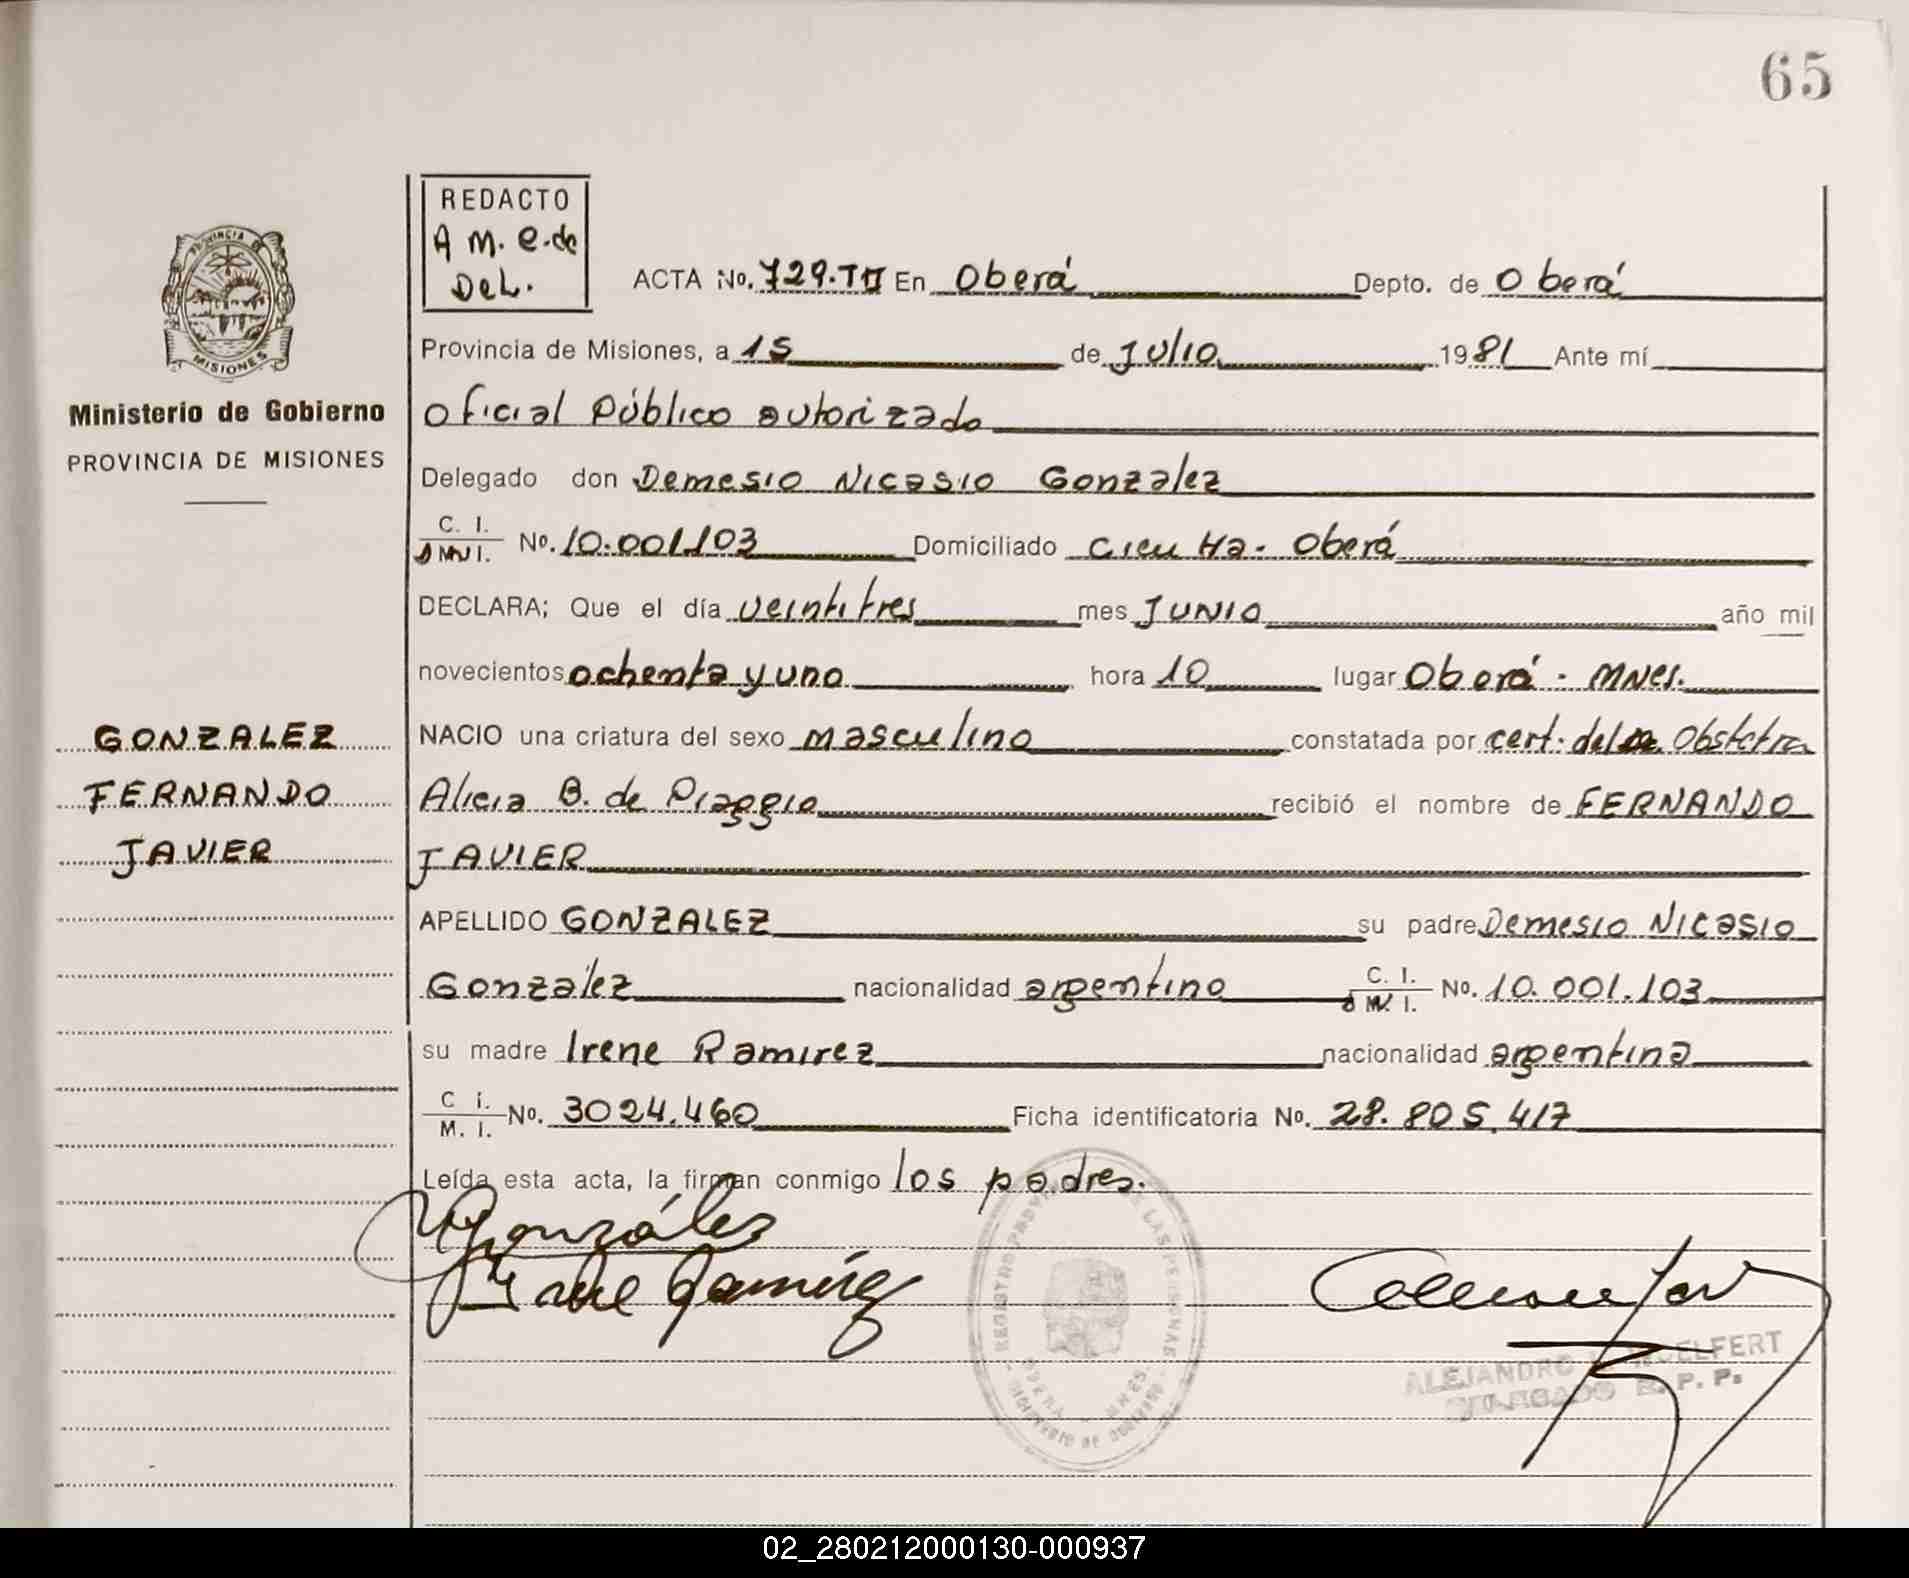 65
REDACTO
A M. e. de
Del.
PROVINCIA DE
MISIONES
Ministerio de Gobierno
PROVINCIA DE MISIONES
ACTA No. 729.TII En Oberá Depto. de Oberá
Provincia de Misiones, a 15 de Julio 1981 Ante mí
oficial Público autorizado
Delegado don Demesio Nicasio Gonzalez
C. I.
M. I. No. 10.001.103 Domiciliado Oberá
DECLARA; Que el día veintitres mes JUNIO año mil
novecientos ochenta y uno hora 10 lugar Oberá - Mnes.
GONZALEZ
FERNANDO
JAVIER
NACIO una criatura del sexo masculino constatada por cert. de la Obstetra
Alicia B. de Piaggio recibió el nombre de FERNANDO
JAVIER
APELLIDO GONZALEZ su padre Demesio Nicasio
González nacionalidad argentino C. I.
M. I. No. 10.001.103
su madre Irene Ramirez nacionalidad argentina
C I.
M. I. No. 3024.460 Ficha identificatoria No. 28.805.417
Leída esta acta, la firman conmigo los padres.
González
Irene Ramírez
REGISTRO PROV. DE LAS PERSONAS
MINISTERIO DE GOBIERNO
OBERA - MNES.
ALEJANDRO WOELFERT
DELEGADO R. P. P.
02_280212000130-000937